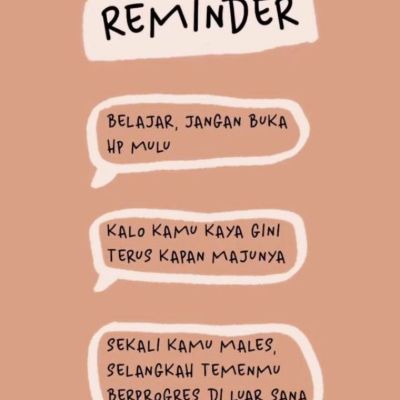 REMINDER
BELAJAR, JANGAN BUKA
HP MULU
KALO KAMU KAYA GINI
TERUS KAPAN MAJUNYA
SEKALI KAMU MALES,
SELANGKAH TEMENMU
BERPROGRES DI LUAR SANA